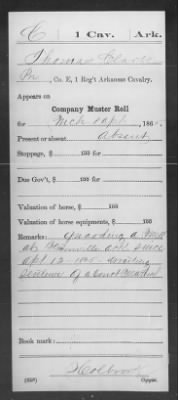 E | 1 Cav. | Ark.
Thomas Clark
Pvt, Co. E, 1 Reg't Arkansas Cavalry.
Appears on
Company Muster Roll
for Mch & Apl, 186 .
Present or absent Absent
Stoppage, $ 100 for
Due Gov't, $ 100 for
Valuation of horse, $ 100
Valuation of horse equipments, $ 100
Remarks: guarding a Mill
at Ark since
Apl 12 1865. awaiting
Sentence of a Court Martial
Book mark:
Holbrook
(358) Copyist.